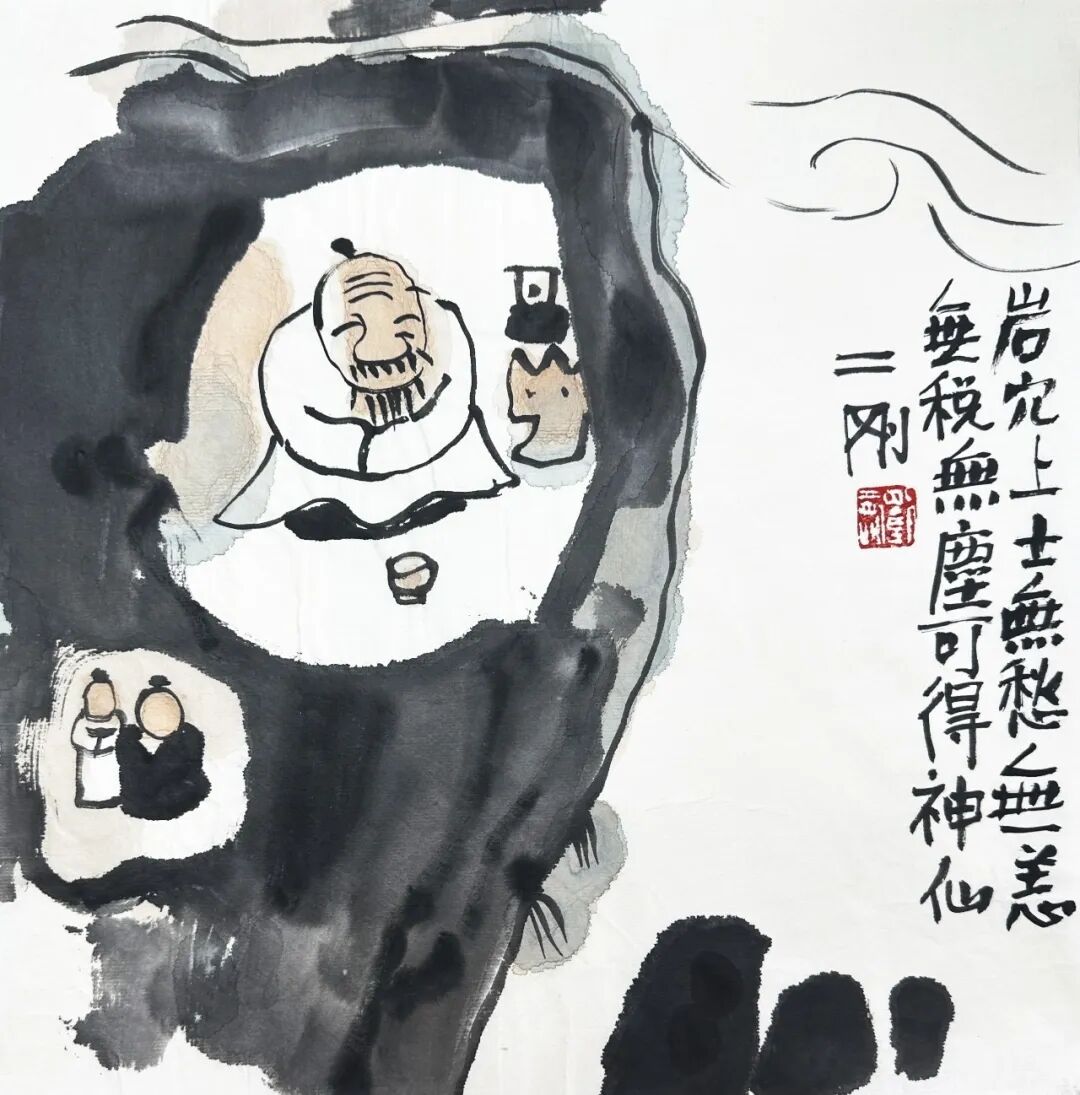 岩穴上士無愁無恙
無税無塵可得神仙
二刚